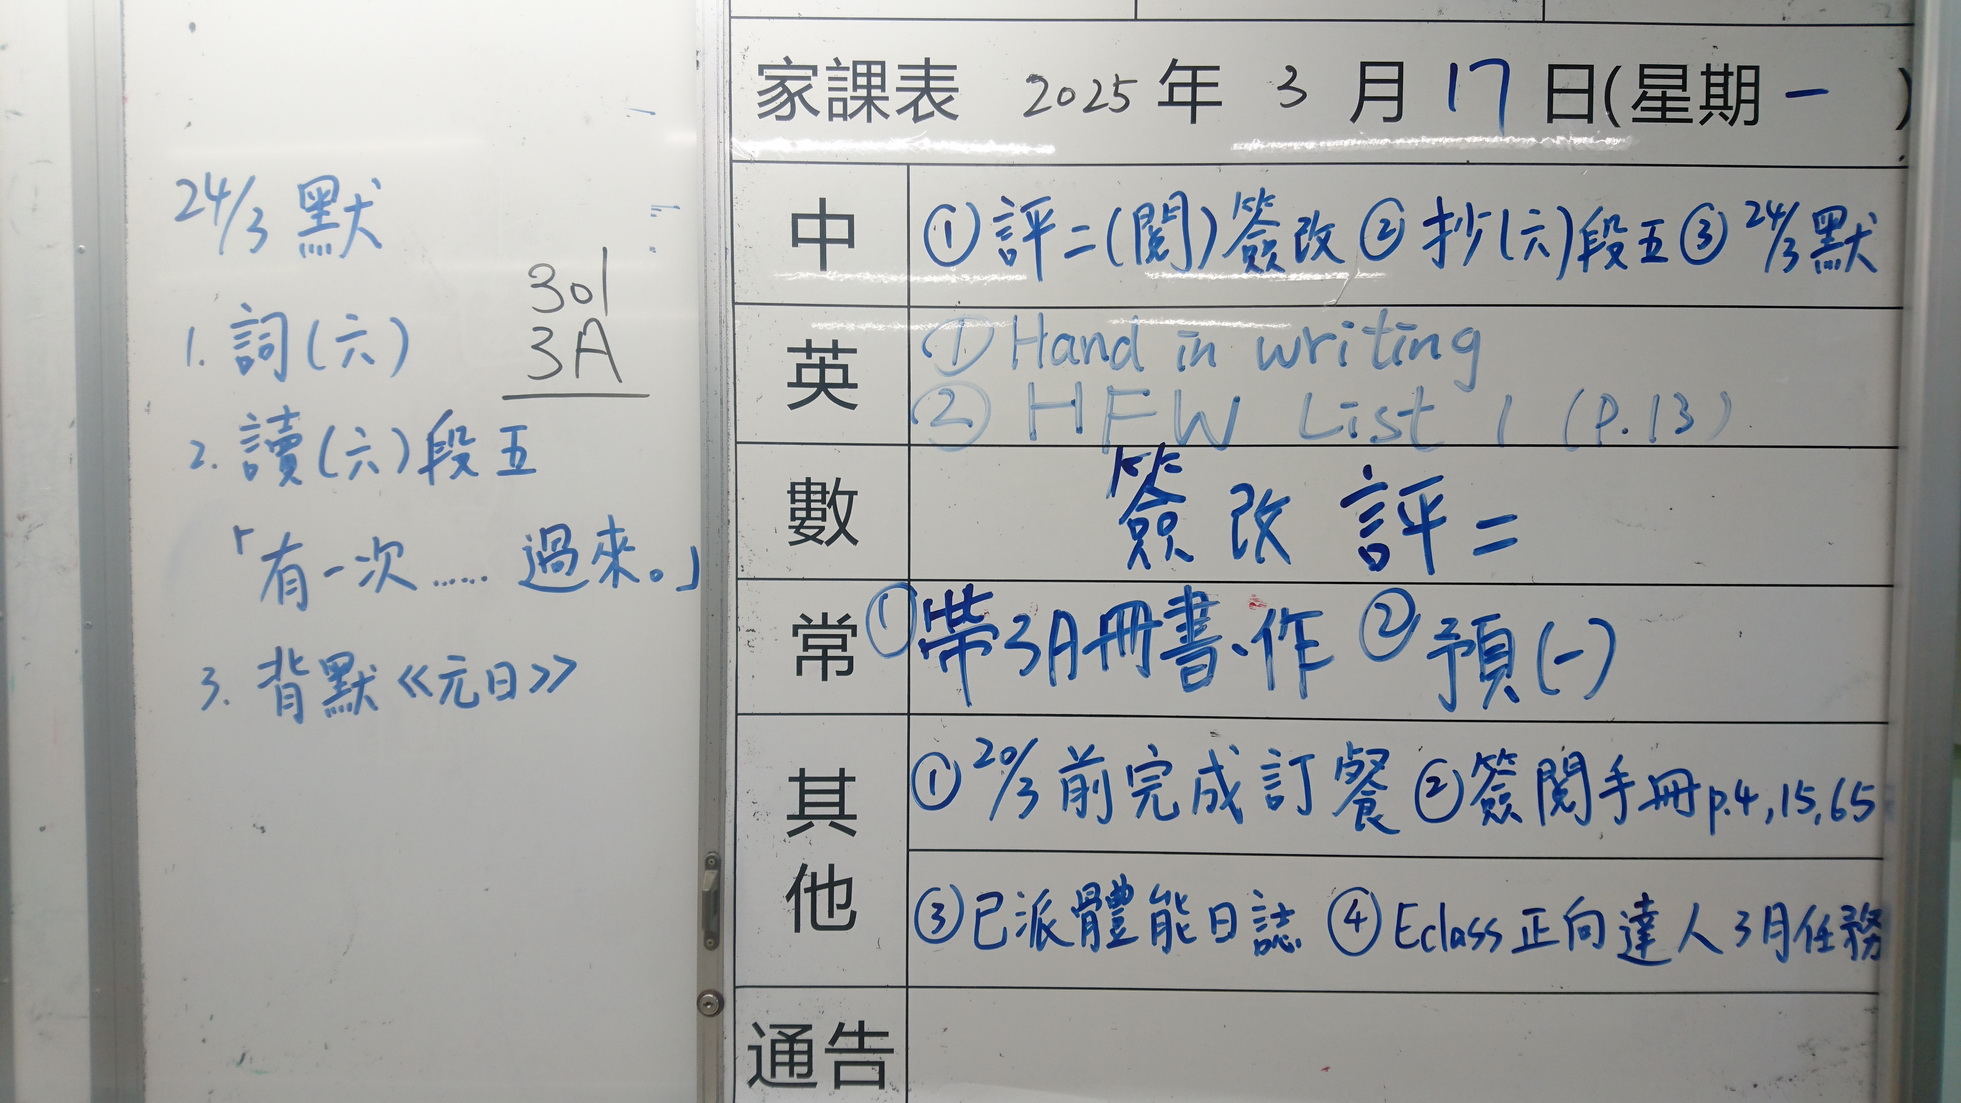 24/3 默
301
3A
1. 詞(六)
2. 讀(六)段五
「有一次……過來。」
3. 背默《元日》
家課表 2025 年 3 月 17 日(星期一 )
中 ①評二(閱)簽改 ②抄(六)段五 ③24/3默
英 ①Hand in writing
②HFW List 1 (P.13)
數 簽改評二
常 ①帶3A冊書、作 ②預(一)
其他 ①20/3前完成訂餐 ②簽閱手冊p.4,15,65
③已派體能日誌 ④Eclass正向達人3月任務
通告